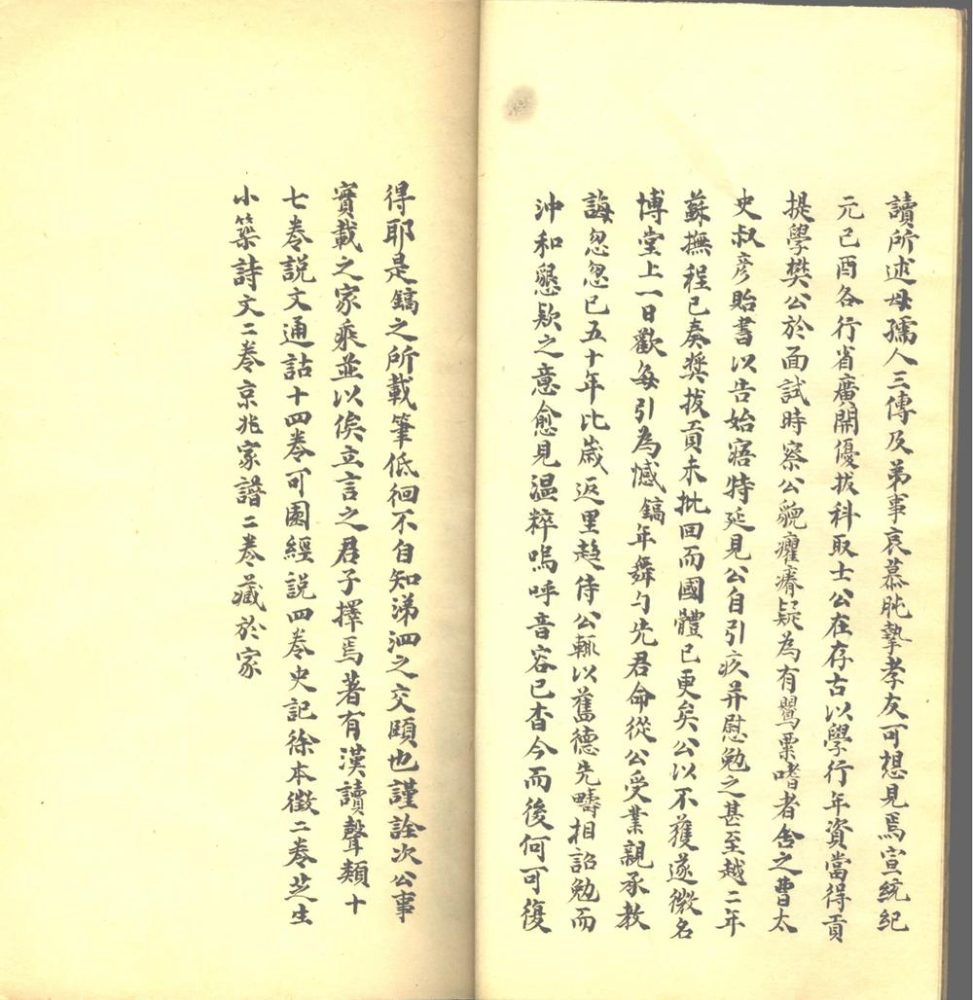 讀所述母孺人三傳及弟事哀慕肫摯孝友可想見焉宣統紀
元己酉各行省廣開優拔科取士公在存古以學行年資當得貢
提學樊公於面試時察公貌癯瘠疑為有罌粟嗜者舍之曹太
史叔彥貽書以告始寤特延見公自引疚并慰勉之甚至越二年
蘇撫程已奏獎拔貢未批回而國體已更矣公以不獲遂微名
博堂上一日歡每引為憾鎬年舞勺先君命從公受業親承教
誨忽忽已五十年比歲返里趨侍公輒以舊德先疇相詔勉而
沖和懇款之意愈見溫粹嗚呼音容已杳今而後何可復
得耶是鎬之所載筆低徊不自知涕泗之交頤也謹詮次公事
實載之家乘並以俟立言之君子擇焉著有漢讀聲類十
七卷說文通詁十四卷可園經說四卷史記徐本徵二卷芝生
小築詩文二卷京兆家譜二卷藏於家